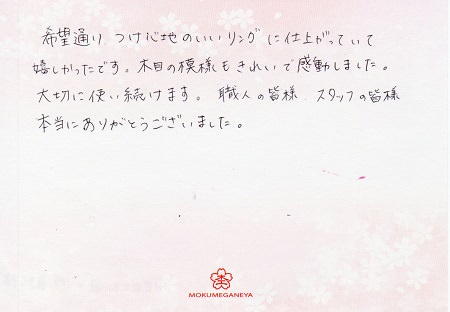 希望通り つけ心地のいいリングに仕上がっていて
嬉しかったです。木目の模様もきれいで感動しました。
大切に使い続けます。職人の皆様 スタッフの皆様
本当にありがとうございました。
MOKUMEGANEYA